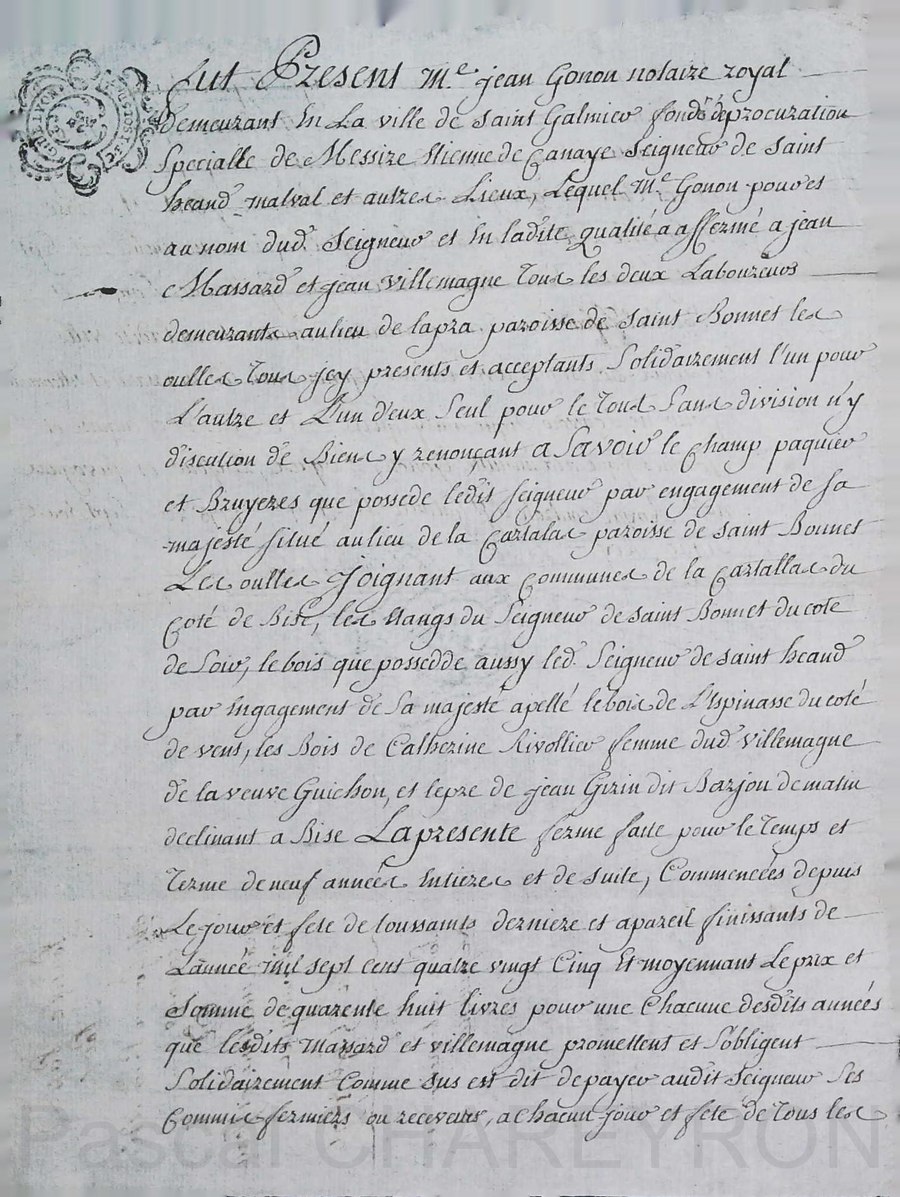 Fut Present Me. jean Gonon notaire royal
Demeurant En La ville de Saint Galmier fondé de procuration
Specialle de Messire Etienne de Canaye Seigneur de Saint
heand malval et autres Lieux, Lequel Me Gonon pour et
au nom dud. Seigneur et En ladite qualité a affermé a jean
Massard et jean Villemagne Tous les deux Laboureurs
demeurants au lieu de lapra paroisse de Saint Bonnet les
oulles Tous jcy presents et acceptants Solidairement l'un pour
L'autre et L'un d'eux Seul pour le Tout Sans division n'y
discution de Biens y renonçant a Savoir le Champ paquier
et Bruyeres que possede ledit Seigneur par engagement de Sa
majesté Situé au lieu de la Cartalas paroisse de Saint Bonnet
Les oulles Joignant aux Communes de la Cartallas du
Coté de Bise, les Etangs du Seigneur de Saint Bonnet du coté
de Soir, le bois que possedde aussy led. Seigneur de Saint heand
par Engagement de Sa majesté apellé le bois de L'Espinasse du coté
de vent, les Bois de Catherine Rivollier femme dud. Villemagne
de la veuve Guichon, et le pre de jean Girin dit Barjon de matin
declinant a Bise La presente ferme faite pour le Temps et
Terme de neuf années Entieres et de Suite, Commencées depuis
Le jour et fete de toussaints derniere et a pareil finissants de
L'année mil sept Cent quatre vingt Cinq Et moyennant Le prix et
Somme de quarente huit livres pour une Chacune desdits années
que lesdits Massard et villemagne promettent et S'obligent
Solidairement Comme Sus est dit de payer audit Seigneur Ses
Commis fermiers ou receveurs, a chacun jour et fete de Tous les
Pascal CHAREYRON